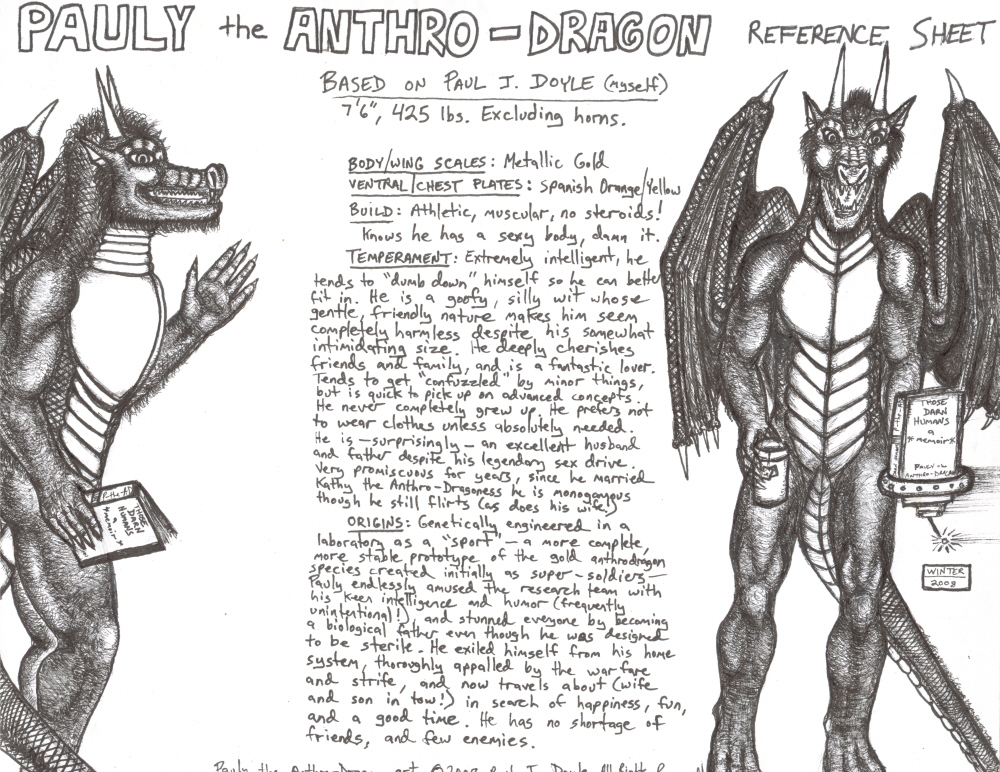 PAULY the ANTHRO-DRAGON REFERENCE SHEET
BASED ON PAUL J. DOYLE (myself)
7'6", 425 lbs. Excluding horns.
BODY/WING SCALES: Metallic Gold
VENTRAL/CHEST PLATES: Spanish Orange/Yellow
BUILD: Athletic, muscular, no steroids!
Knows he has a sexy body, damn it.
TEMPERAMENT: Extremely intelligent, he
tends to "dumb down" himself so he can better
fit in. He is a goofy, silly wit whose
gentle, friendly nature makes him seem
completely harmless despite his somewhat
intimidating size. He deeply cherishes
friends and family, and is a fantastic lover.
Tends to get "confuzzled" by minor things,
but is quick to pick up on advanced concepts.
He never completely grew up. He prefers not
to wear clothes unless absolutely needed.
He is – surprisingly – an excellent husband
and father despite his legendary sex drive.
Very promiscuous for years, since he married
Kathy the Anthro-Dragoness he is monogamous
though he still flirts (as does his wife!)
ORIGINS: Genetically engineered in a
laboratory as a "sport" – a more complete,
more stable prototype of the gold anthrodragon
species created initially as super-soldiers –
Pauly endlessly amused the research team with
his keen intelligence and humor (frequently
unintentional!), and stunned everyone by becoming
a biological father even though he was designed
to be sterile. He exiled himself from his home
system, thoroughly appalled by the warfare
and strife, and now travels about (wife
and son in tow!) in search of happiness, fun,
and a good time. He has no shortage of
friends, and few enemies.
THOSE
DARN
HUMANS
a
*memoir*
THOSE
DARN
HUMANS
a
*memoir*
PAULY the
ANTHRO-DRAGON
WINTER
2008
Pauly the Anthro-Dragon art © Paul J. Doyle All Rights